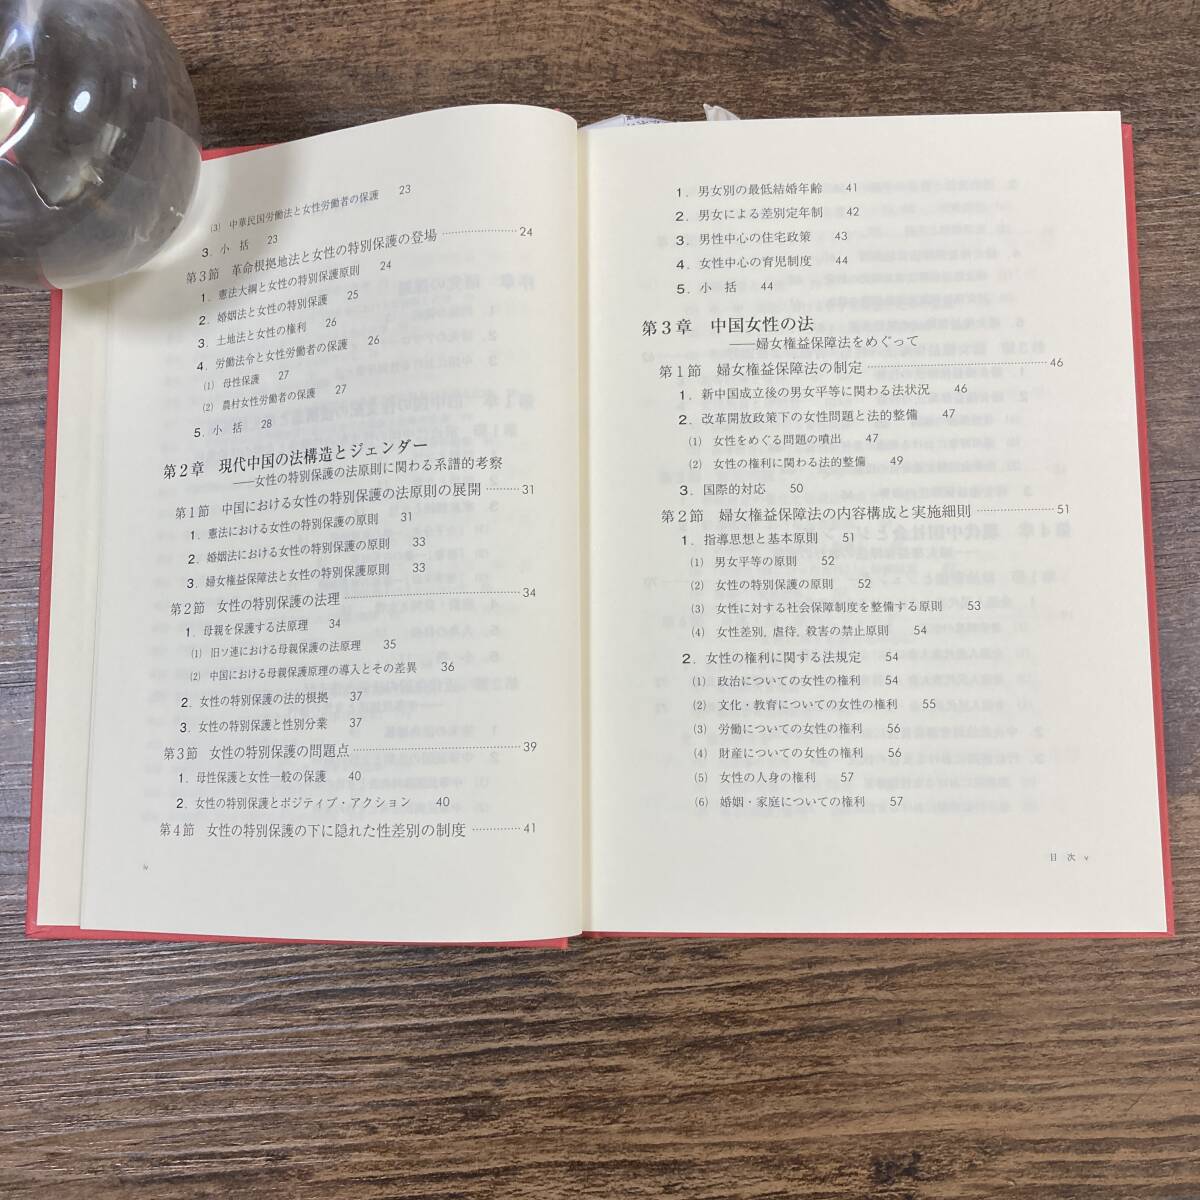 (3) 中華民国労働法と女性労働者の保護 23
3. 小 括 23
第3節 革命根拠地法と女性の特別保護の登場 …………………24
1. 憲法大綱と女性の特別保護原則 24
2. 婚姻法と女性の特別保護 25
3. 土地法と女性の権利 26
4. 労働法令と女性労働者の保護 26
(1) 母性保護 27
(2) 農村女性労働者の保護 27
5. 小 括 28
第2章 現代中国の法構造とジェンダー
——女性の特別保護の法原則に関わる系譜的考察
第1節 中国における女性の特別保護の法原則の展開 ………31
1. 憲法における女性の特別保護の原則 31
2. 婚姻法における女性の特別保護の原則 33
3. 婦女権益保障法と女性の特別保護原則 33
第2節 女性の特別保護の法理 ……………………………………34
1. 母親を保護する法原理 34
(1) 旧ソ連における母親保護の法原理 35
(2) 中国における母親保護原理の導入とその差異 36
2. 女性の特別保護の法的根拠 37
3. 女性の特別保護と性別分業 37
第3節 女性の特別保護の問題点 …………………………………39
1. 母性保護と女性一般の保護 40
2. 女性の特別保護とポジティブ・アクション 40
第4節 女性の特別保護の下に隠れた性差別の制度 …………41
iv
1. 男女別の最低結婚年齢 41
2. 男女による差別定年制 42
3. 男性中心の住宅政策 43
4. 女性中心の育児制度 44
5. 小 括 44
第3章 中国女性の法
——婦女権益保障法をめぐって
第1節 婦女権益保障法の制定 ……………………………………46
1. 新中国成立後の男女平等に関わる法状況 46
2. 改革開放政策下の女性問題と法的整備 47
(1) 女性をめぐる問題の噴出 47
(2) 女性の権利に関わる法的整備 49
3. 国際的対応 50
第2節 婦女権益保障法の内容構成と実施細則 ………………51
1. 指導思想と基本原則 51
(1) 男女平等の原則 52
(2) 女性の特別保護の原則 52
(3) 女性に対する社会保障制度を整備する原則 53
(4) 女性差別, 虐待, 殺害の禁止原則 54
2. 女性の権利に関する法規定 54
(1) 政治についての女性の権利 54
(2) 文化・教育についての女性の権利 55
(3) 労働についての女性の権利 56
(4) 財産についての女性の権利 56
(5) 女性の人身の権利 57
(6) 婚姻・家庭についての権利 57
目 次 v